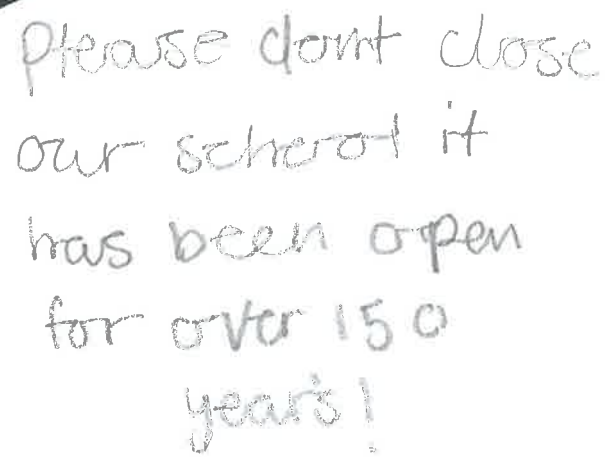 Please dont close
our school it
has been open
for over 150
years!